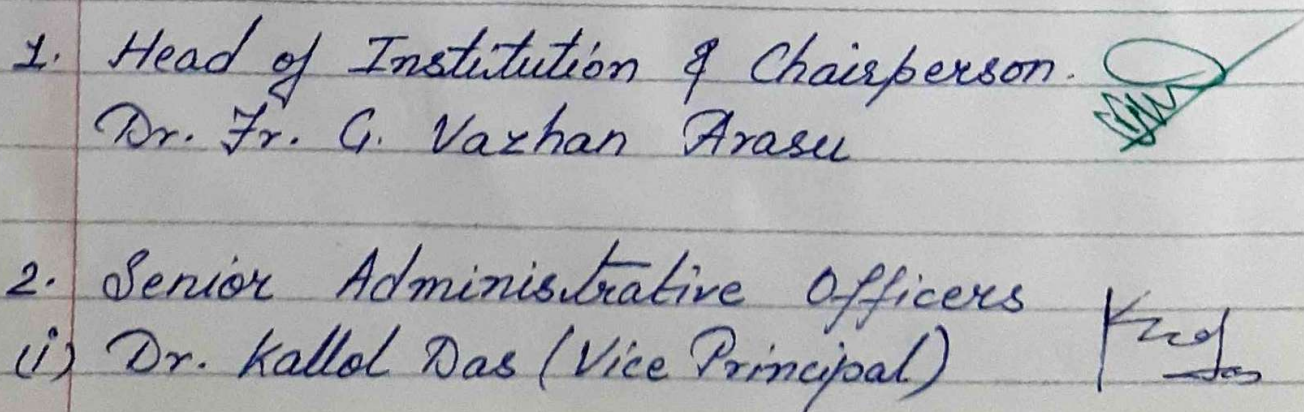 1. Head of Institution & Chairperson.
Dr. Fr. G. Vazhan Arasu
2. Senior Administrative Officers
(i) Dr. Kallol Das (Vice Principal)